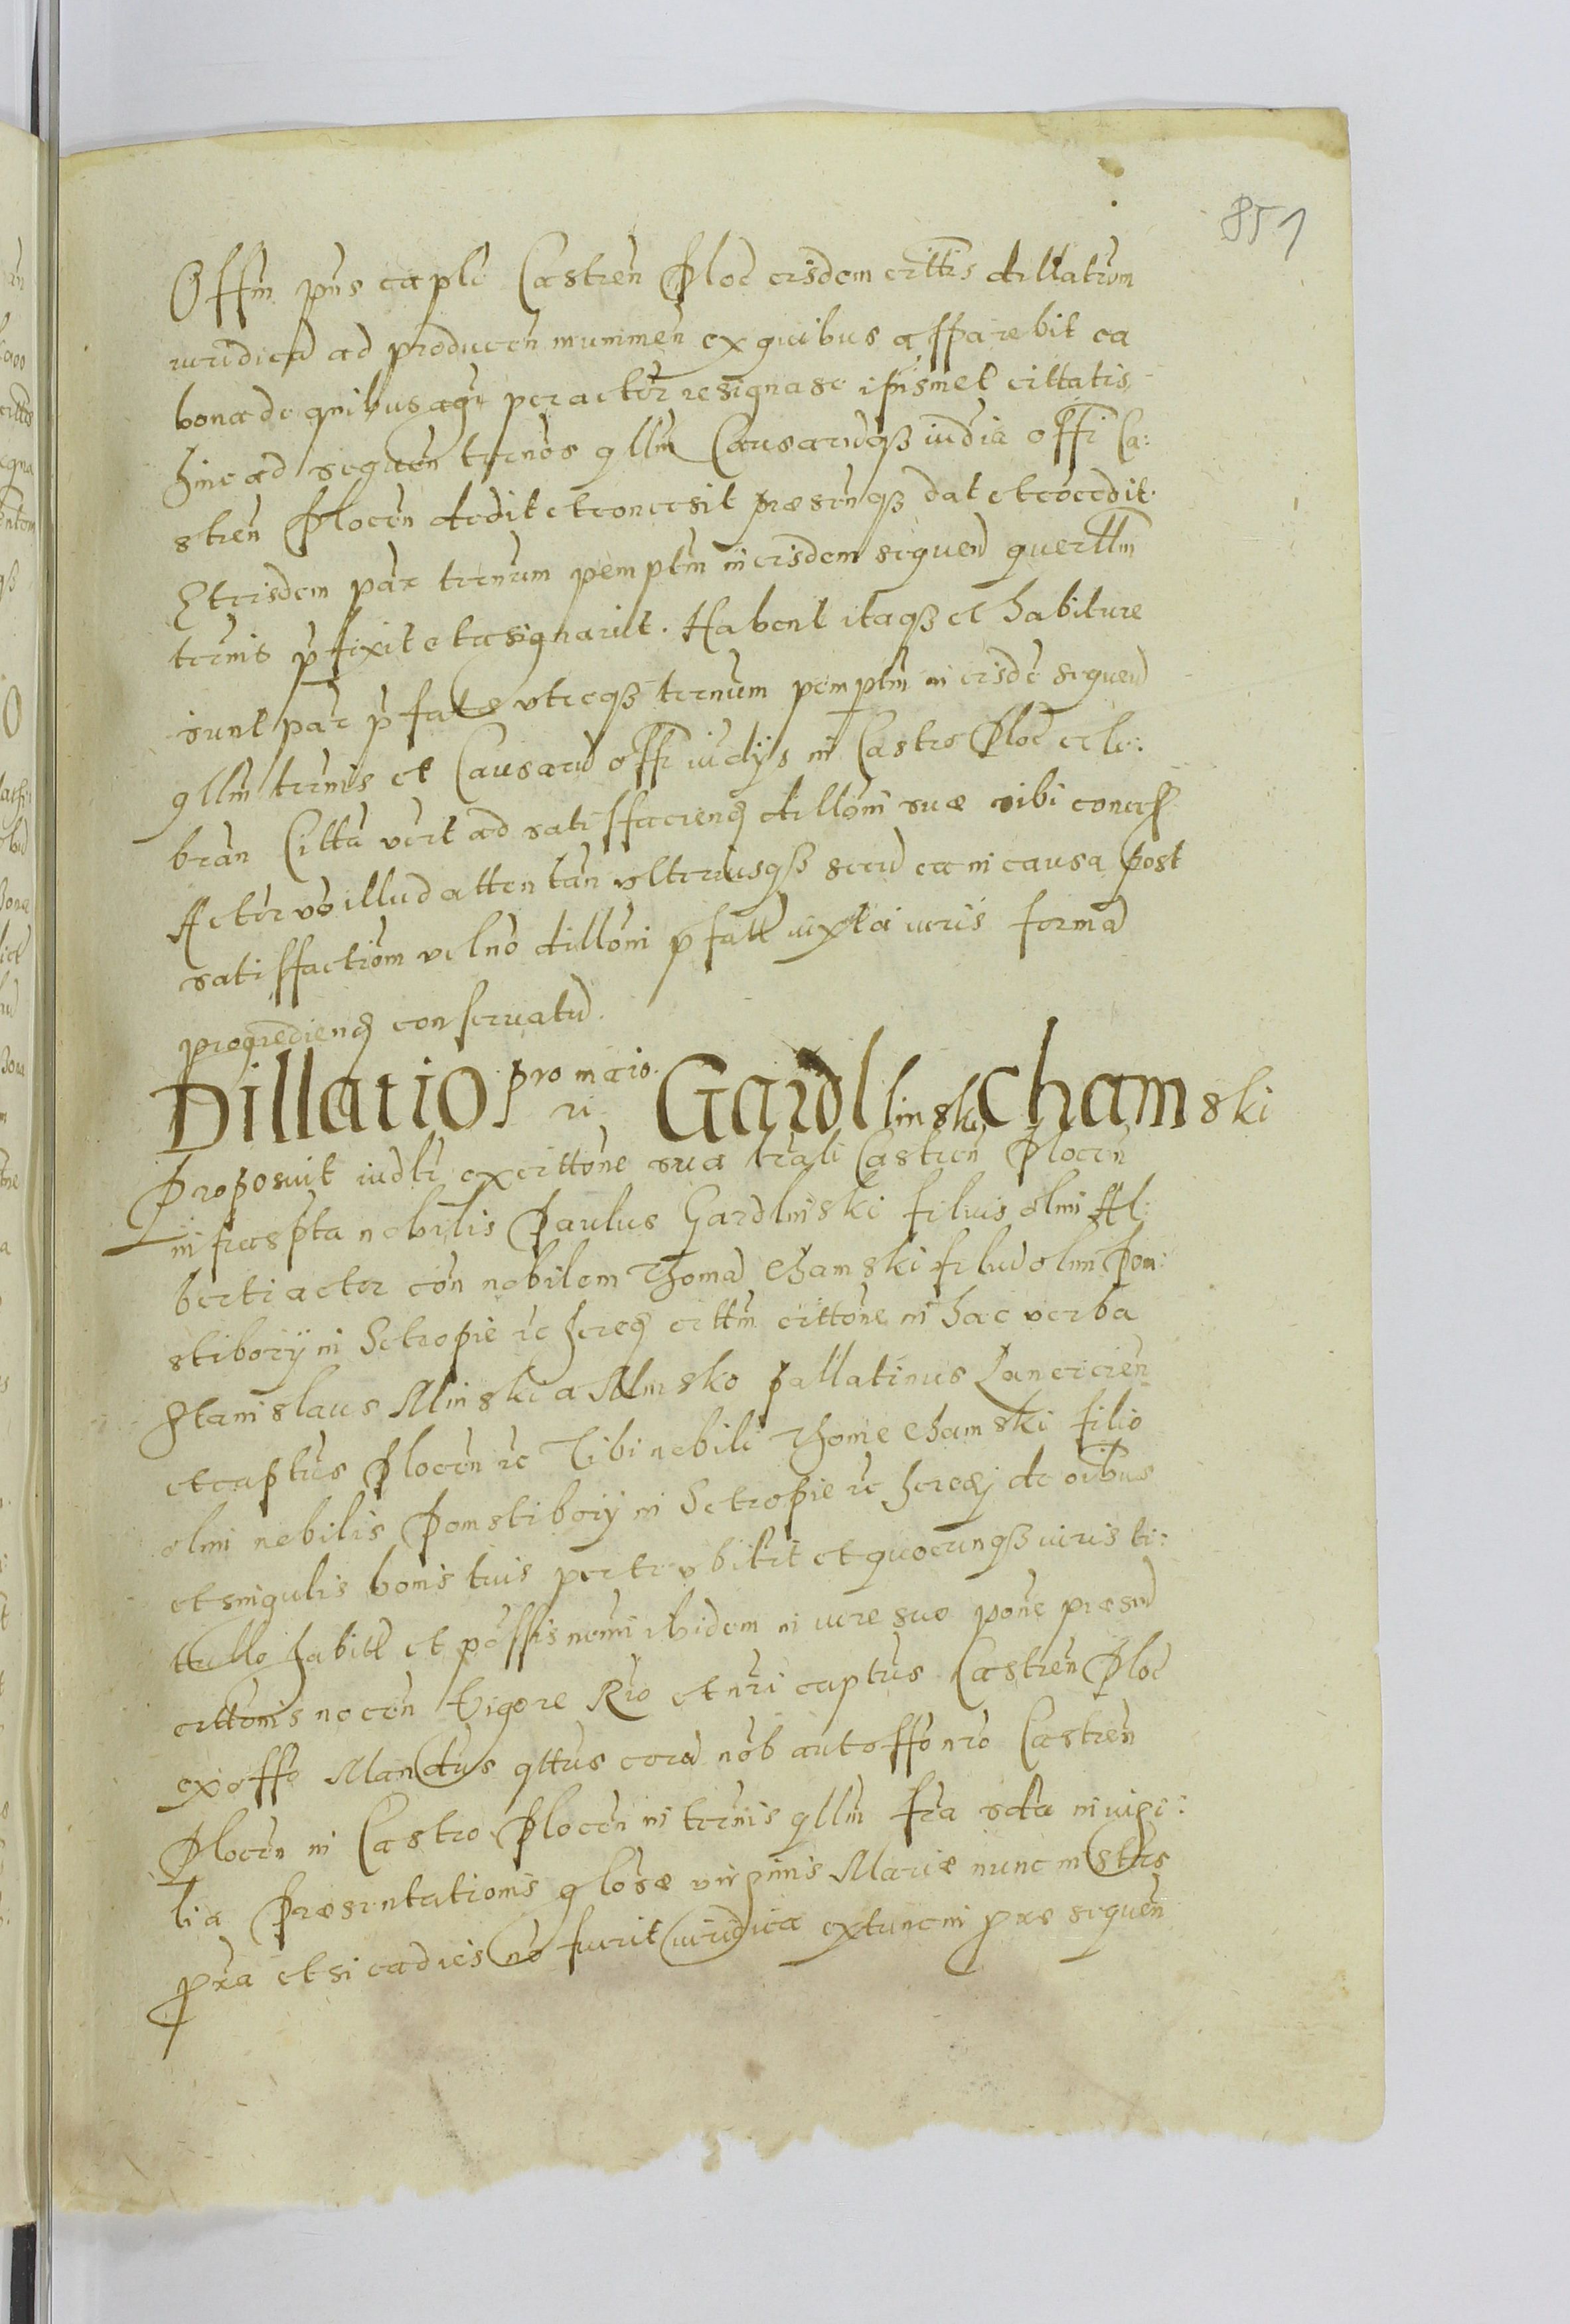 851
Offm pns capli Castren Ploc eisdem cittis dillatiom
iuridica ad producen munimen ex quibus apparebit ea
bona de quibus agr per actor resignasc ipsismet cittatis
hinc ad sequen trnos qllm Causaruqß iudia offi Ca:
stren Plocen dedit et concesit præsenqß dat et cocedit.
Et eisdem par trnum pemptm in eisdem sequen querllm
trnis pfixit et assignavit. Habent itaqß et habiture
sunt par pfatæ utreqß trnum pemptm in eisde sequen
qllm trnis et Causaru offi iudys in Castro Ploc cele:
bran Citta vert ad satisffaciend dillom suæ sibi concess
Actor vo illud attentan ulteriusqß secu ea in causa post
satisffactiom vel no dilloni pfatt iuxta iuris forma
progrediend conservatu.
Dillatio pro maio. Gardllinski Chamski
ri
Proposuit iudlr ex cittone sua trali Castren Plocen
infraspta nobilis Paulus Gardlinski filius olmi Al:
berti actor con nobilem Thoma Chamski filiu olim Pom:
stiborÿ in Setropie rc hered cittm cittone in hac verba
Stanislaus Minski a Minsko Pallatinus Lancicien
et captus Plocen rc Tibi nobili Thome Chamski filio
olmi nobilis Pomstiborÿ in Setropie rc heredj de oibus
et singulis bonis tuis per te ubilit et quocunqß iuris ti:
tullo habitl et possis nemi ibidem in iure suo pone præsen
cittonis nocen Vigore Rio et nri captus Castren Ploc
ex offo Mandtus qttus cora nob aut offo nro Castren
Plocen in Castro Plocen in trnis qllm fra scda in vigi:
lia Præsentationis glosæ virginis Mariæ nunc in sttes
pxa et si ea dies no fuerit iuridica extunc in pxs sequen